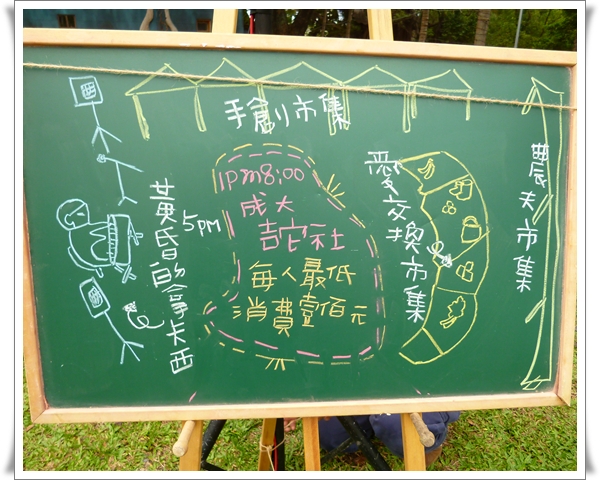 手創市集
1pm8:00
成大
吉它社
每人最低
消費壹佰元
黃昏的拿卡西
5pm
愛交換市集
農夫市集